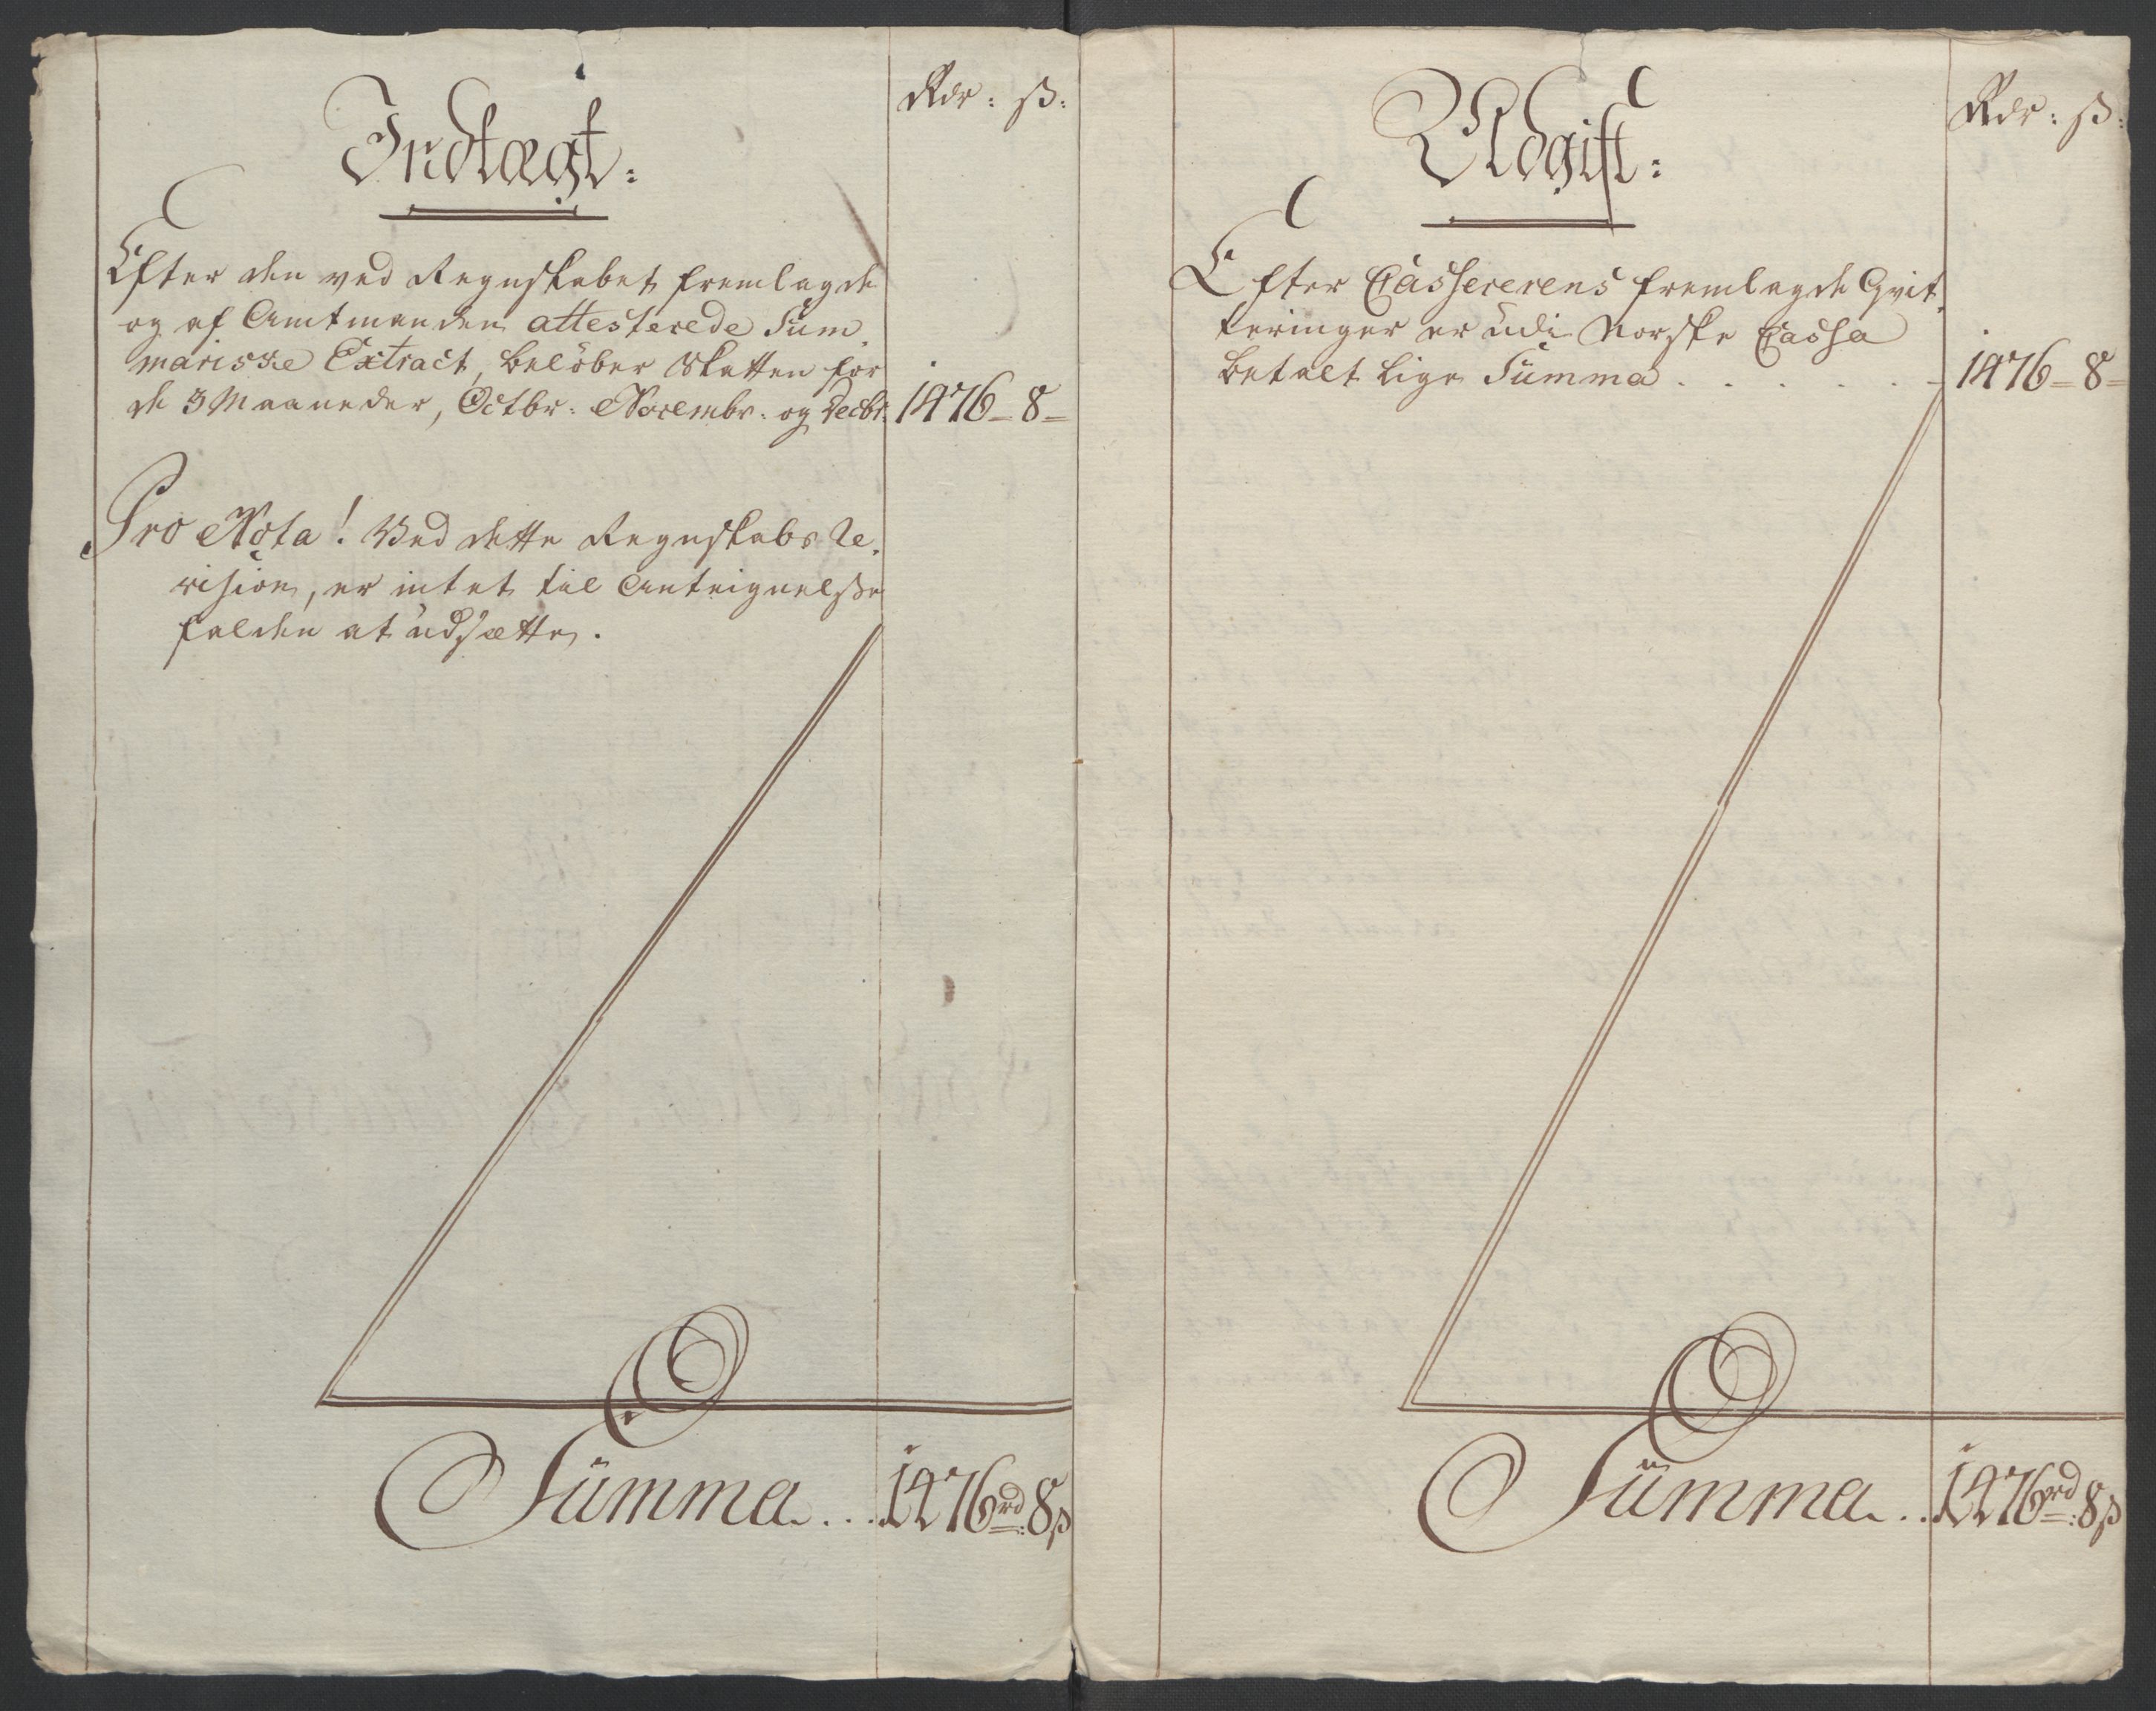 Indtægt:
Rdr: ß:
Efter den ved Regnskabet fremlagde
og af Amtmanden attesterede Sum¬
mariske Extract, beløber Skatten for
de 3 Maaneder, Octbr: Novembr: og Decbr: 1476 - 8 -
Pro Nota! Ved dette Regnskabs Re¬
vision, er intet til Anteignelse
falden at udsætte.
Summa ... 1476 rd: 8 ß
Udgift:
Rdr: ß:
Efter Cassererens fremlagde Qvit¬
teringer er udi Norske Cassa
betalt lige Summa . . . . . - 1476 - 8 -
Summa .. 1476 rd: 8 ß